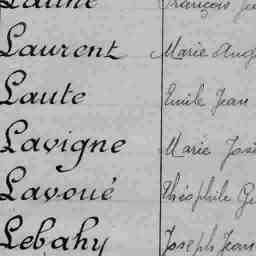 Laurent Marie Ang
Laute Emile Jean
Lavigne Marie José
Lavoué Théophile
Lebahy Joseph Jean